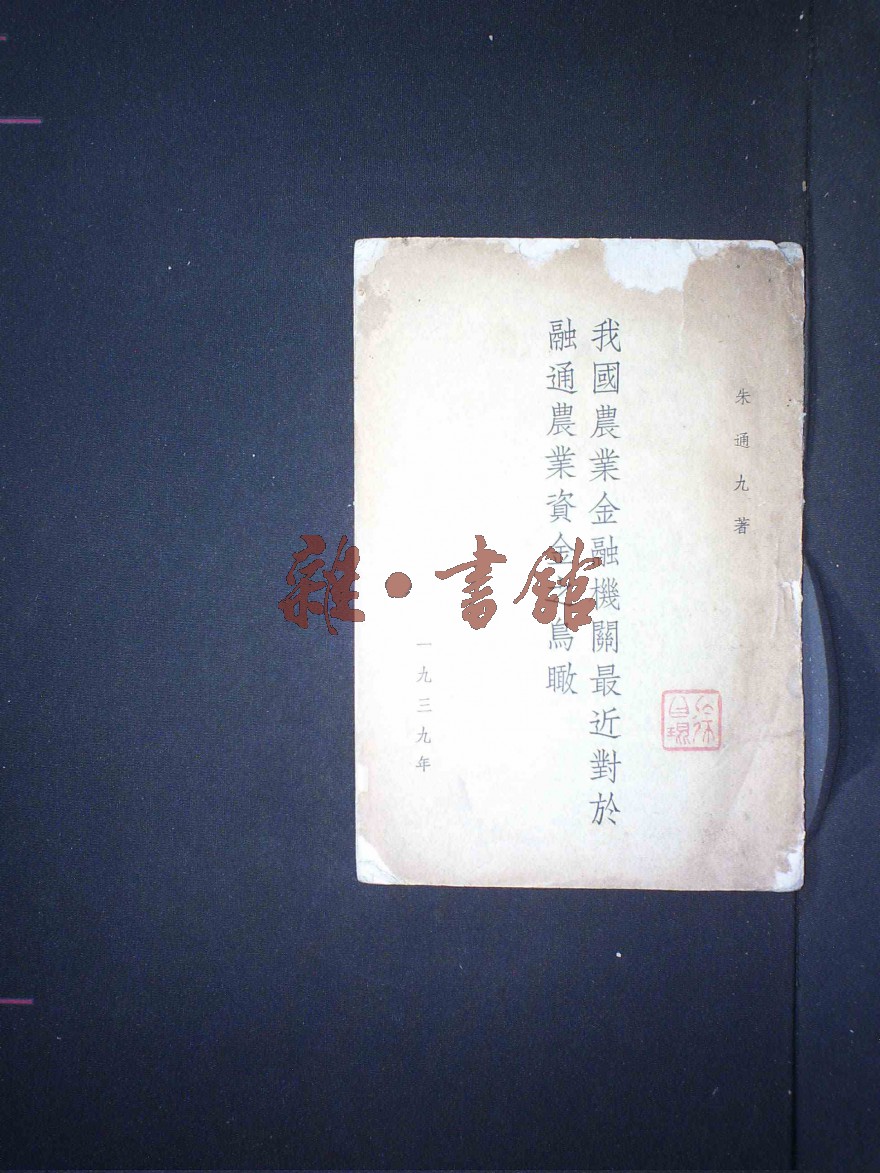 朱通九著
我國農業金融機關最近對於
融通農業資金之鳥瞰
一九三九年
雜·書館